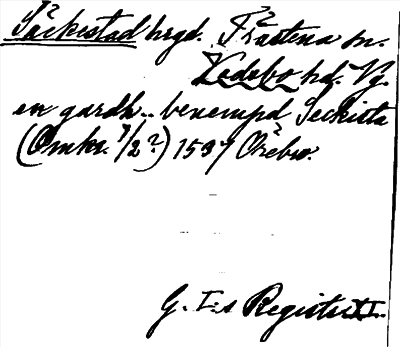 Säckestad hrgd. Fråstena sn.
Vadsbo hd. Vg.
en gardh.. benempd Seckista
(Omkr. 1/2?) 1597 Örebro.
G. I:s Registr. I.